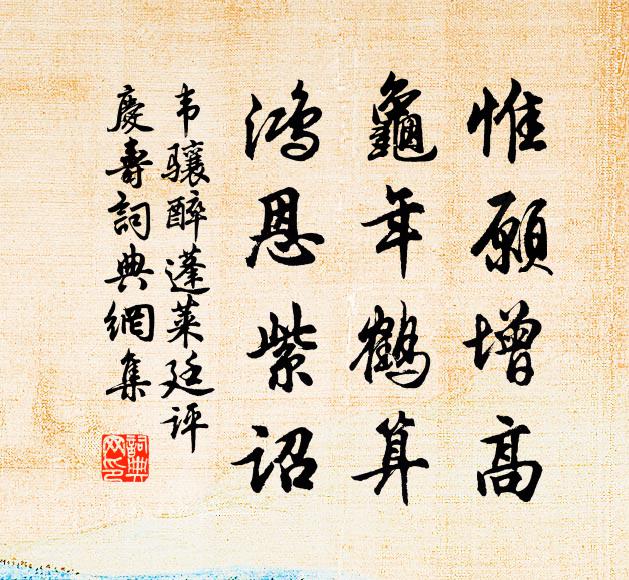 惟願增高
龜年鶴算
鴻恩紫詔
韦骧醉蓬莱廷评
慶壽詞典網集
詞典网印